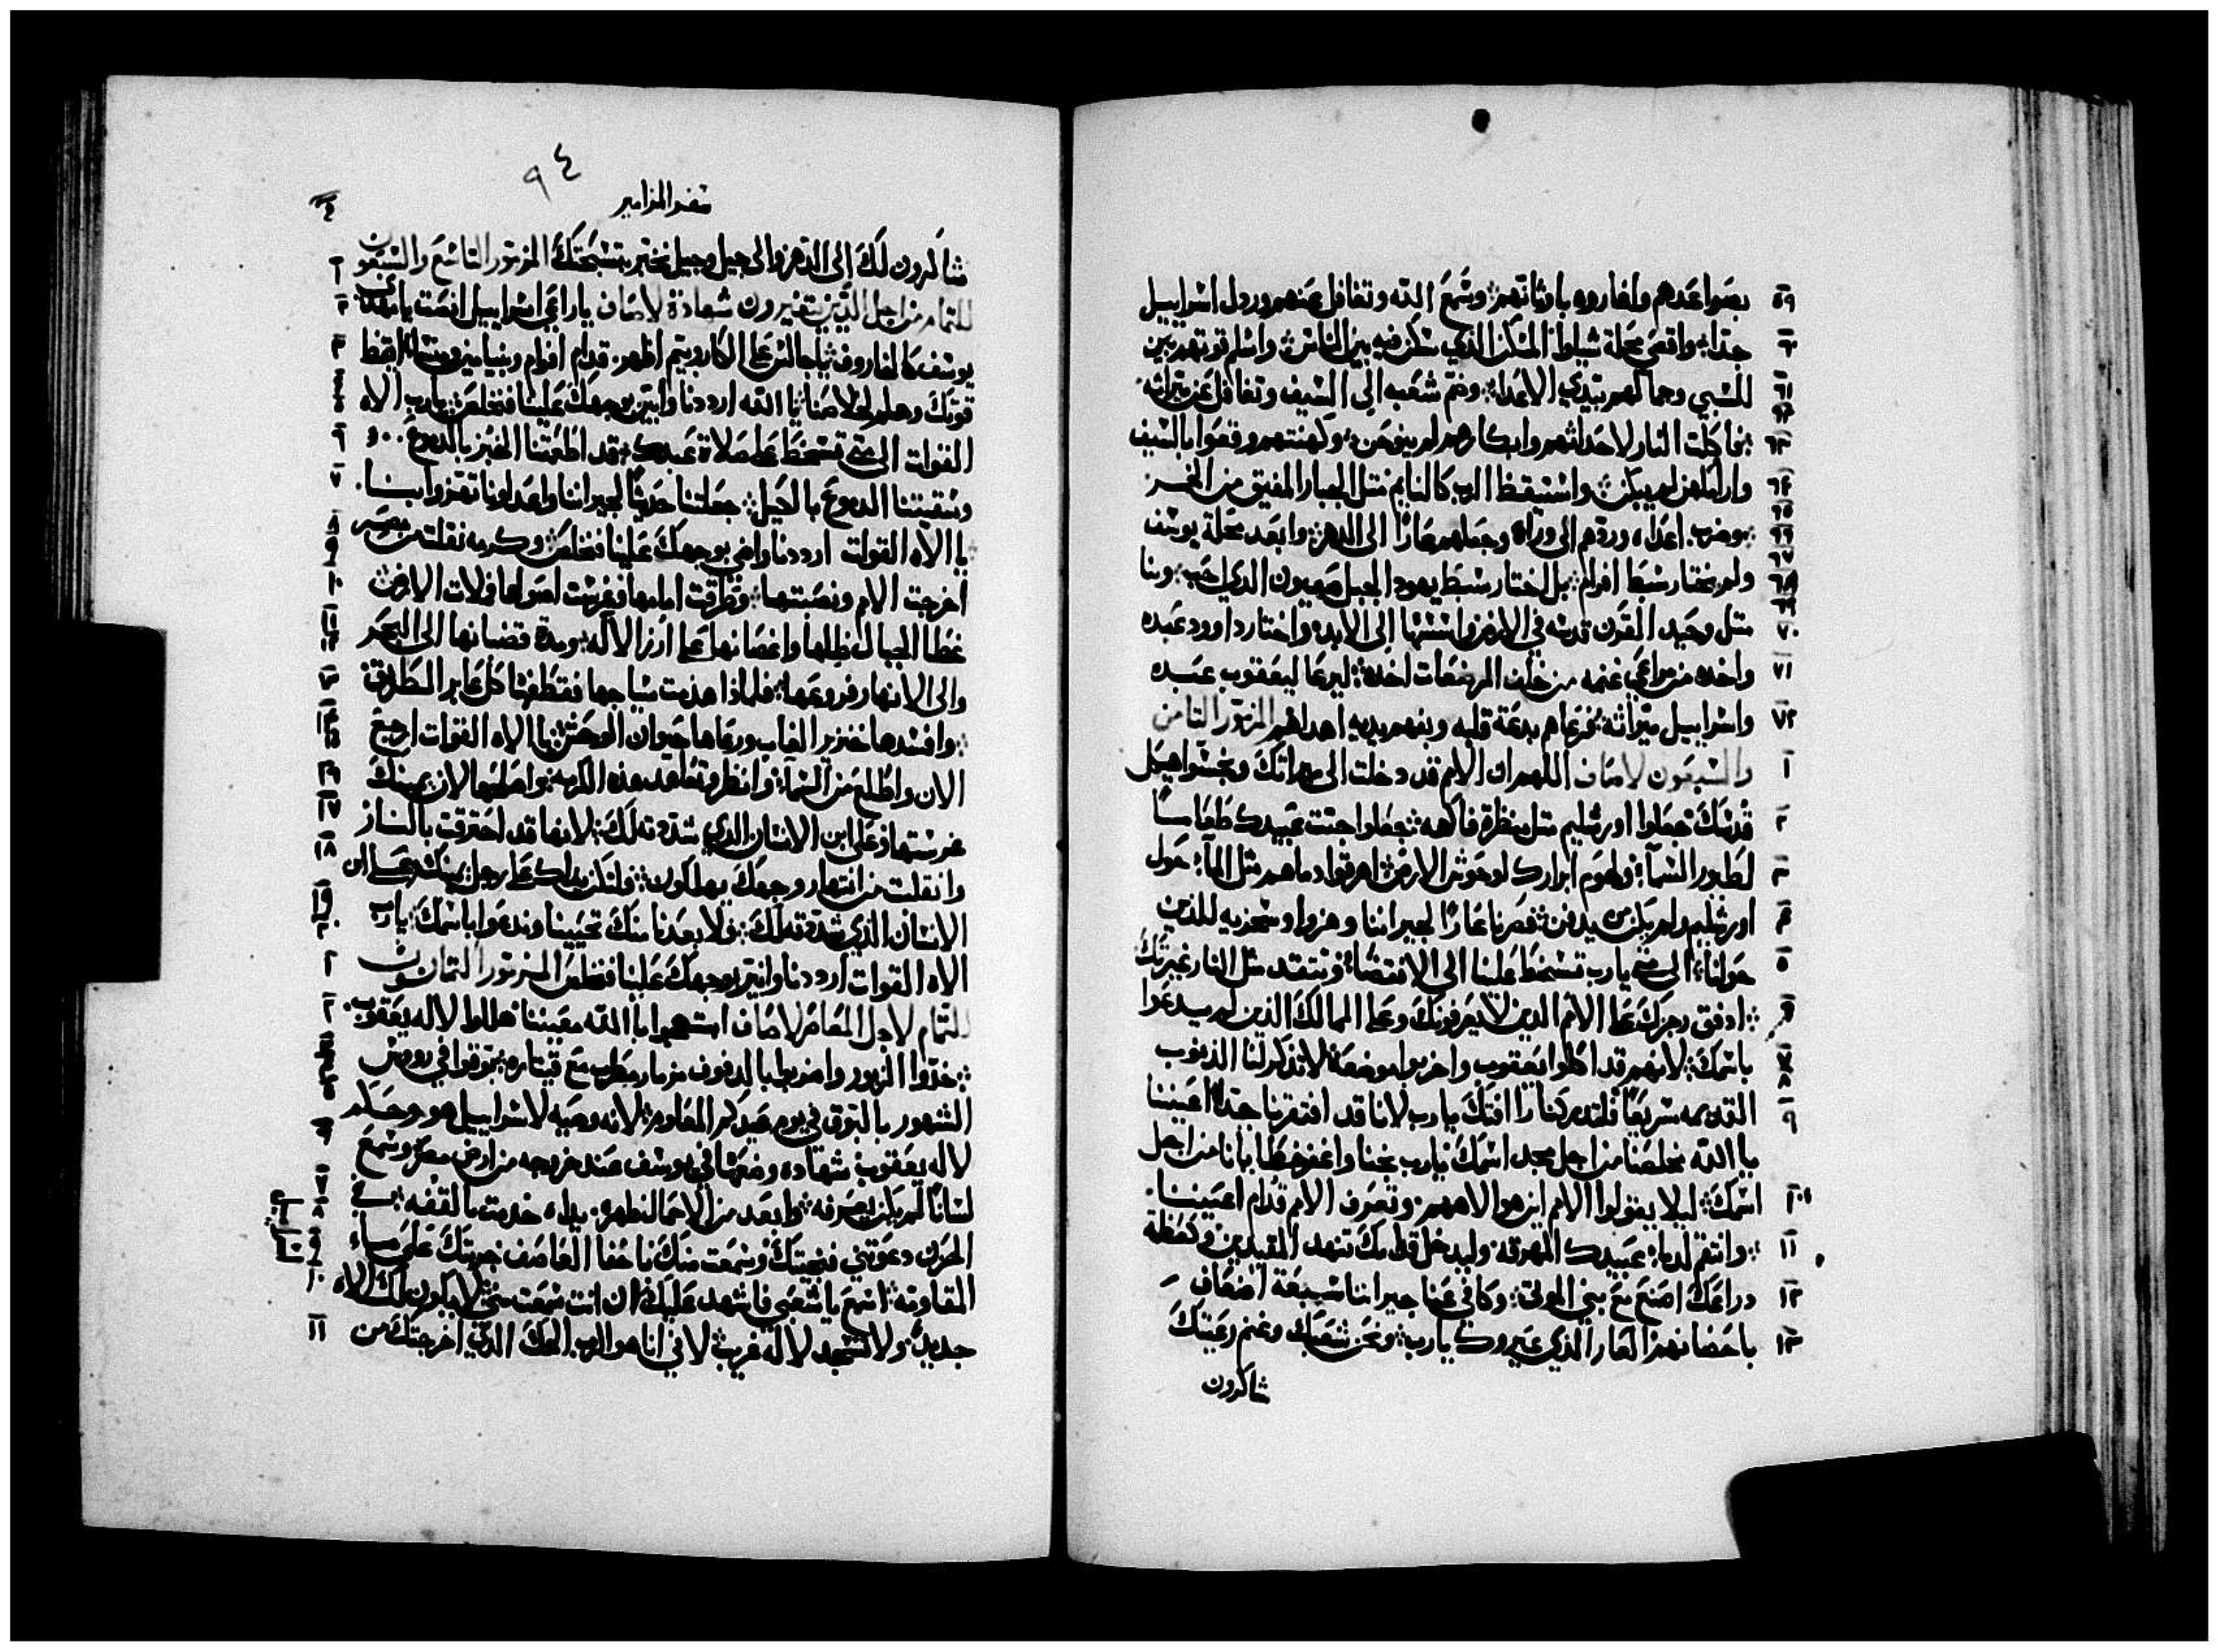 ٥٩ بصواعدهم واغاروه باوثانهم وسمع الله وتغافل عنهم ورذل اسراييل
٦٠ جدا واقصى محلة شيلوا المسكن الذي سكن فيه بين الناس واسلم قوتهم بين
٦١ للسبي وجمالهم بيدي الاعدا وضم شعبه الى السيف وتغافل عن ميراثه
٦٣ فاكلت النار لاحداثهم وابكارهم لم ينوحن وكهنتهم وقعوا بالسيف
٦٤ واراملهن لم يبكن واستيقظ الرب كالنايم مثل الجبار المفيق من الخمر
٦٦ وضرب اعداه وردهم الى وراه وجعلهم عارًا الى الدهر وابعد محلة يوسف
٦٨ ولم يختار سبط افرام بل اختار سبط يهودا الجبل صهيون الذي احب وبنا
٧٠ مثل وحيد القرن قدسه في الارض واسسها الى الابد واختار داوود عبده
٧١ واخده من مراعي غنمه من خلف المرضعات اخده ليرعا ليعقوب عبده
٧٢ واسراييل ميراثه فرعاهم بدعة قلبه وبفهم يديه اهداهم المزمور الثامن
١ والسبعون لاصاف اللهم ان الامم قد دخلت الى ميراتك ونجسوا هيكل
٢ قدسك جعلوا اورشليم مثل منظرة فاكهه جعلوا جثت عبيدك طعامًا
٣ لطيور السمآ ولحوم ابرارك لوحوش الارض اهرقوا دماهم مثل المآ حول
٤ اورشليم ولم يكن من يدفن فصرنا عارًا لجيراننا وهزوا وسخريه للذين
٥ حولنا الى متى يارب تسخط علينا الى الانقضا وتتقد مثل النار غيرتك
٦ ادفق رجزك على الامم الذين لا يعرفونك وعلى الممالك الذين لم يدعوا
٧ باسمك لانهم قد اكلوا يعقوب واخربوا موضعه لا تذكر لنا الذنوب
٩ القديمه سريعًا فلتدركنا رافتك يارب لانا قد افتقرنا جدًا اعيننا
يا الله مخلصنا من اجل مجد اسمك يارب نجنا واغفر خطايانا من اجل
١٠ اسمك ليلا يقولوا الامم اين هو الاههم وتعرف الامم قدام اعيننا
١١ وانتقم لدما عبيدك المهرقه وليدخل قدامك تنهد المقيدين وكعظة
١٢ دراعك اصنع مع بني الموتى وكافي عنا جيراننا سبعة اضعاف
١٣ باحضانهم العار الذي عيروك يارب ونحن شعبك وغنم رعيتك
شاكرون
٩٤
سفر المزامير
شاكرون لك الى الدهر والى جيل وجيل نخبر بتسبحتك المزمور التاسع والسبعون
للتمام من اجل الذين يتغيرون شهادة لاصاف ياراعي اسراييل انصت
٣ يوسف كالخاروف ياجالس على الكاروبيم اظهر قدام افرام وبنيامين ومنسا ايقظ
قوتك وهلم لخلاصنا يا الله ارددنا وانير بوجهك علينا فنخلص يارب الاه
٦ القوات الى متى تسخط على صلاة عبدك قد اطعمتنا الخبز بالدموع
٧ وسقيتنا الدموع بالكيل جعلتنا حديثًا لجيراننا واعداونا تهزوا بنا
٨ يا الاه القوات ارددنا واضي بوجهك علينا فنخلص وكرمه نقلت من مصر
١٠ اخرجت الامم ونصبتها وطرقت امامها وغرست اصولها فملات الارض
١١ غطا الجبال ظلها واغصانها على ارز الاله ومدة قضبانها الى البحر
١٣ والى الانهار فروعها فلماذا هدمت سياجها فقطفها كل عابر الطريق
١٤ وافسدها خنزير الغاب ورعاها حيوان الوحش يا الاه القوات ارجع
١٦ الان واطلع من السمآ وانظر وتعاهد هذه الكرمه واصلحها لان يمينك
١٧ غرستها وعلى ابن الانسان الذي شددته لك لانها قد احترقت بالنار
١٨ وانقلت من انتهار وجهك يهلكون فلتكن يدك على رجل يمينك وعلى ابن
١٩ الانسان الذي شددته لك ولا بعدنا منك تحيينا وندعوا باسمك يارب
الاه القوات ارددنا وانير بوجهك علينا فنخلص المزمور الثمانون
٢ للتمام لاجل المعاصر لاصاف ابتهجوا بالله معيننا هللوا لاله يعقوب
خدوا المزمور واضربوا بالدفوف مزمار مطرب مع قيتاره بوقوا في رووس
الشهور بالبوق في يوم عيدكم المعلوم لانه وصيه لاسراييل هو وحكم
٦ لاله يعقوب شهاده وضعها في يوسف عند خروجه من ارض مصر وسمع
٧ لسانًا لم يكن يعرفه وابعد من الاحمال ظهره يداه خدمت بالقفه في
الحزن دعوتني فنجيتك وسمعت منك باخفا العاصف جربتك على ماء
١٠ المقاومه اسمع ياشعبي فاشهد عليك ان انت سمعت مني لا يكون لك الاه
١١ جديد ولا تسجد لاله غريب لاني انا هو الرب الهك الذي اخرجتك من